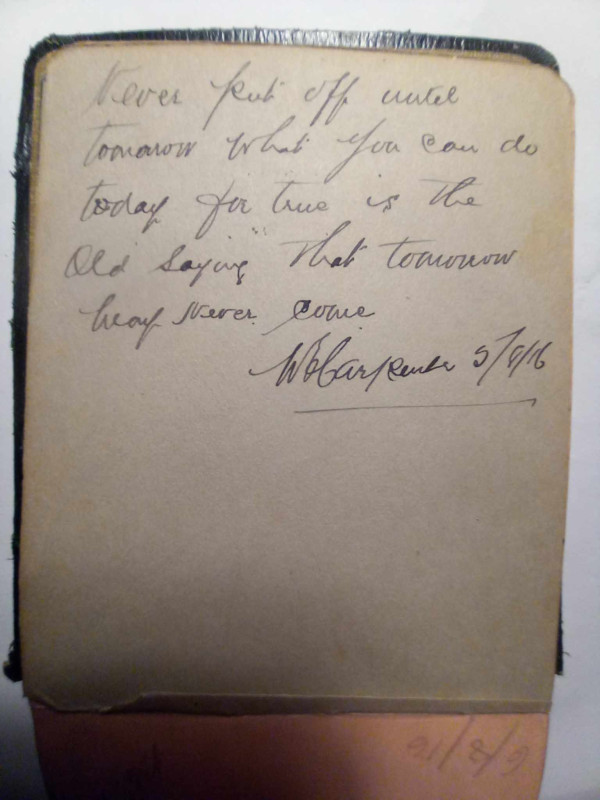 Never put off until
tomorrow what you can do
today for true is the
Old Saying That tomorrow
may Never come
WBCarpenter 5/8/16
9/8/16